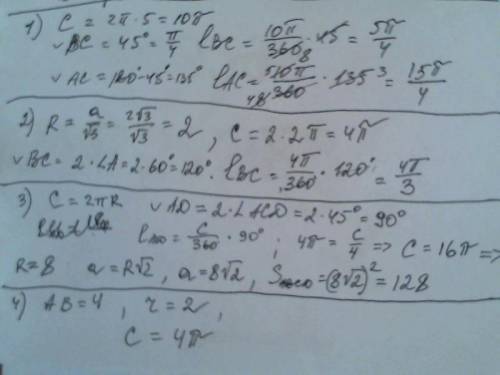 1) C = 2π·5 = 10π
◡BC = 45° = π/4  ℓBC = 10π/360 8 · 45 = 5π/4
◡AC = 180°-45° = 135°  ℓAC = 10π/360 · 135 3 = 15π/4
2) R = a/√3 = 2√3/√3 = 2, C = 2·2π = 4π
◡BC = 2·∠A = 2·60° = 120°. ℓBC = 4π/360 · 120° = 4π/3
3) C = 2πR  ◡AD = 2·∠ACD = 2·45° = 90°
ℓAD = C/360 · 90° ; 4π = C/4 => C = 16π =>
R = 8  a = R√2, a = 8√2, S = (8√2)² = 128
4) AB = 4, r = 2,
C = 4π